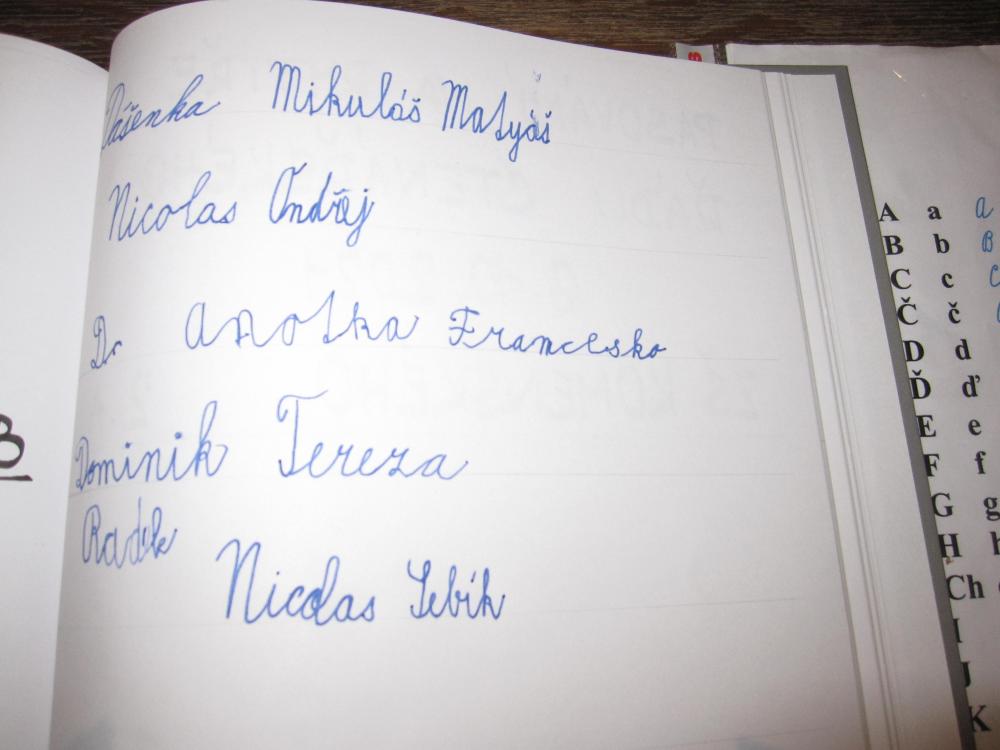 Dášenka Mikuláš Matyáš
Nicolas Ondřej
Dr Anotka Francesko
Dominik Tereza
Radek
Nicolas Sebík
B
A a a
B b B
C c C
Č č
D d
Ď ď
E e
F f
G g
H h
Ch
I
J
K